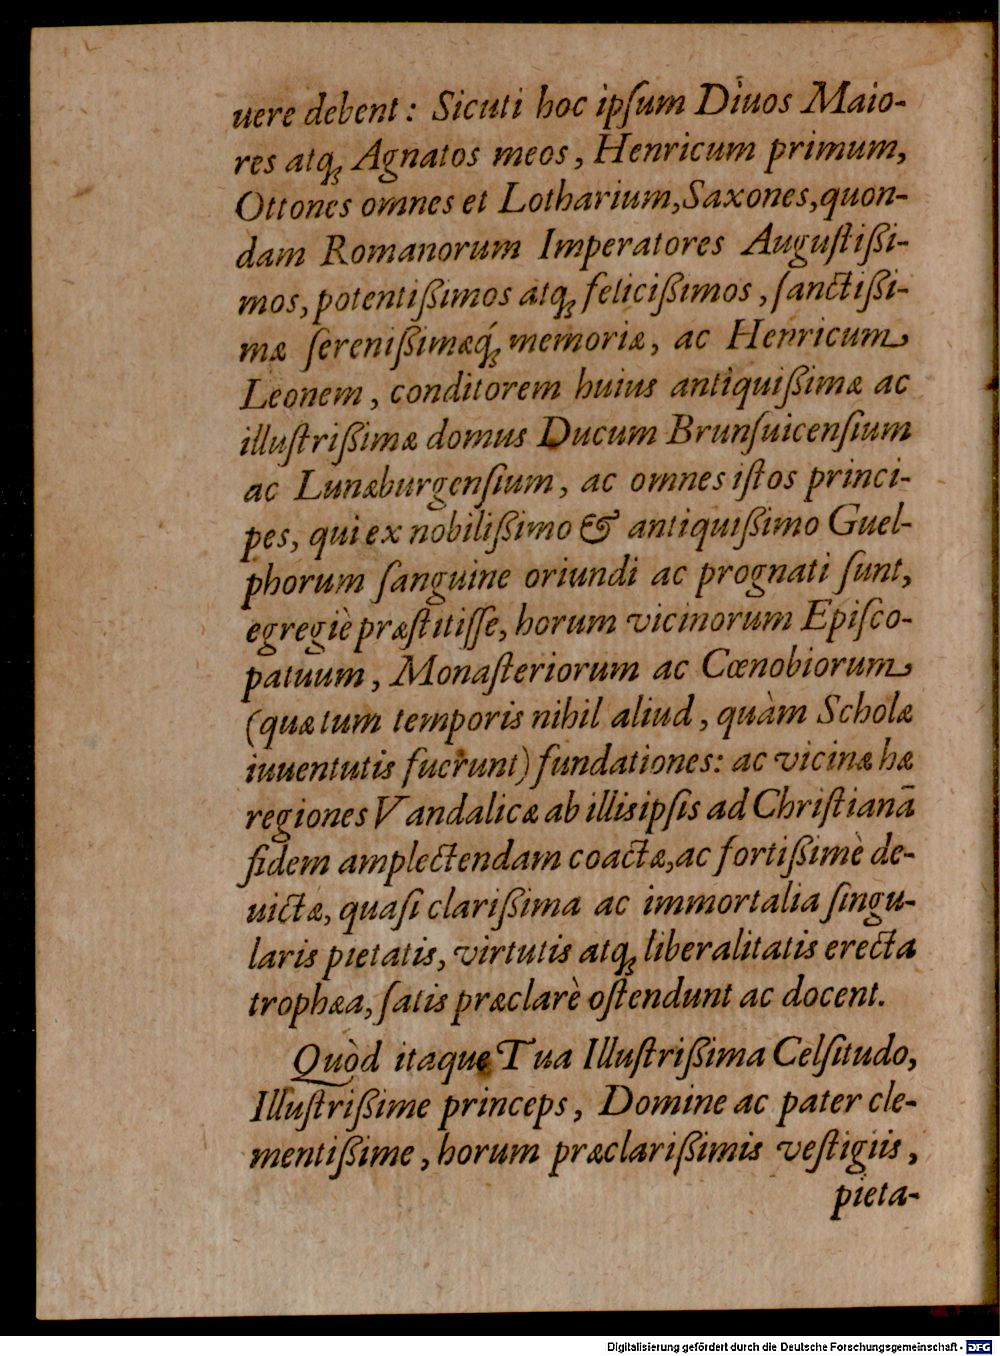 uere debent: Sicuti hoc ipſum Diuos Maio-
res atq; Agnatos meos, Henricum primum,
Ottones omnes et Lotharium, Saxones, quon-
dam Romanorum Imperatores Auguſtißi-
mos, potentißimos atq; felicißimos, ſanctißi-
mæ ſerenißimæq́; memoriæ, ac Henricum
Leonem, conditorem huius antiquißimæ ac
illuſtrißimæ domus Ducum Brunſuicenſium
ac Lunæburgenſium, ac omnes iſtos princi-
pes, qui ex nobilißimo & antiquißimo Guel-
phorum ſanguine oriundi ac prognati ſunt,
egregiè præſtitiſſe, horum vicinorum Epiſco-
patuum, Monaſteriorum ac Cœnobiorum
(quæ tum temporis nihil aliud, quàm Scholæ
iuuentutis fuerunt) fundationes: ac vicinæ hæ
regiones Vandalicæ ab illis ipſis ad Chriſtianā
fidem amplectendam coactæ, ac fortißimè de-
uictæ, quaſi clarißima ac immortalia ſingu-
laris pietatis, virtutis atq; liberalitatis erecta
trophæa, ſatis præclarè oſtendunt ac docent.
Quòd itaque Tua Illuſtrißima Celſitudo,
Illuſtrißime princeps, Domine ac pater cle-
mentißime, horum præclarißimis veſtigiis,
pieta-
Digitalisierung gefördert durch die Deutsche Forschungsgemeinschaft - DFG